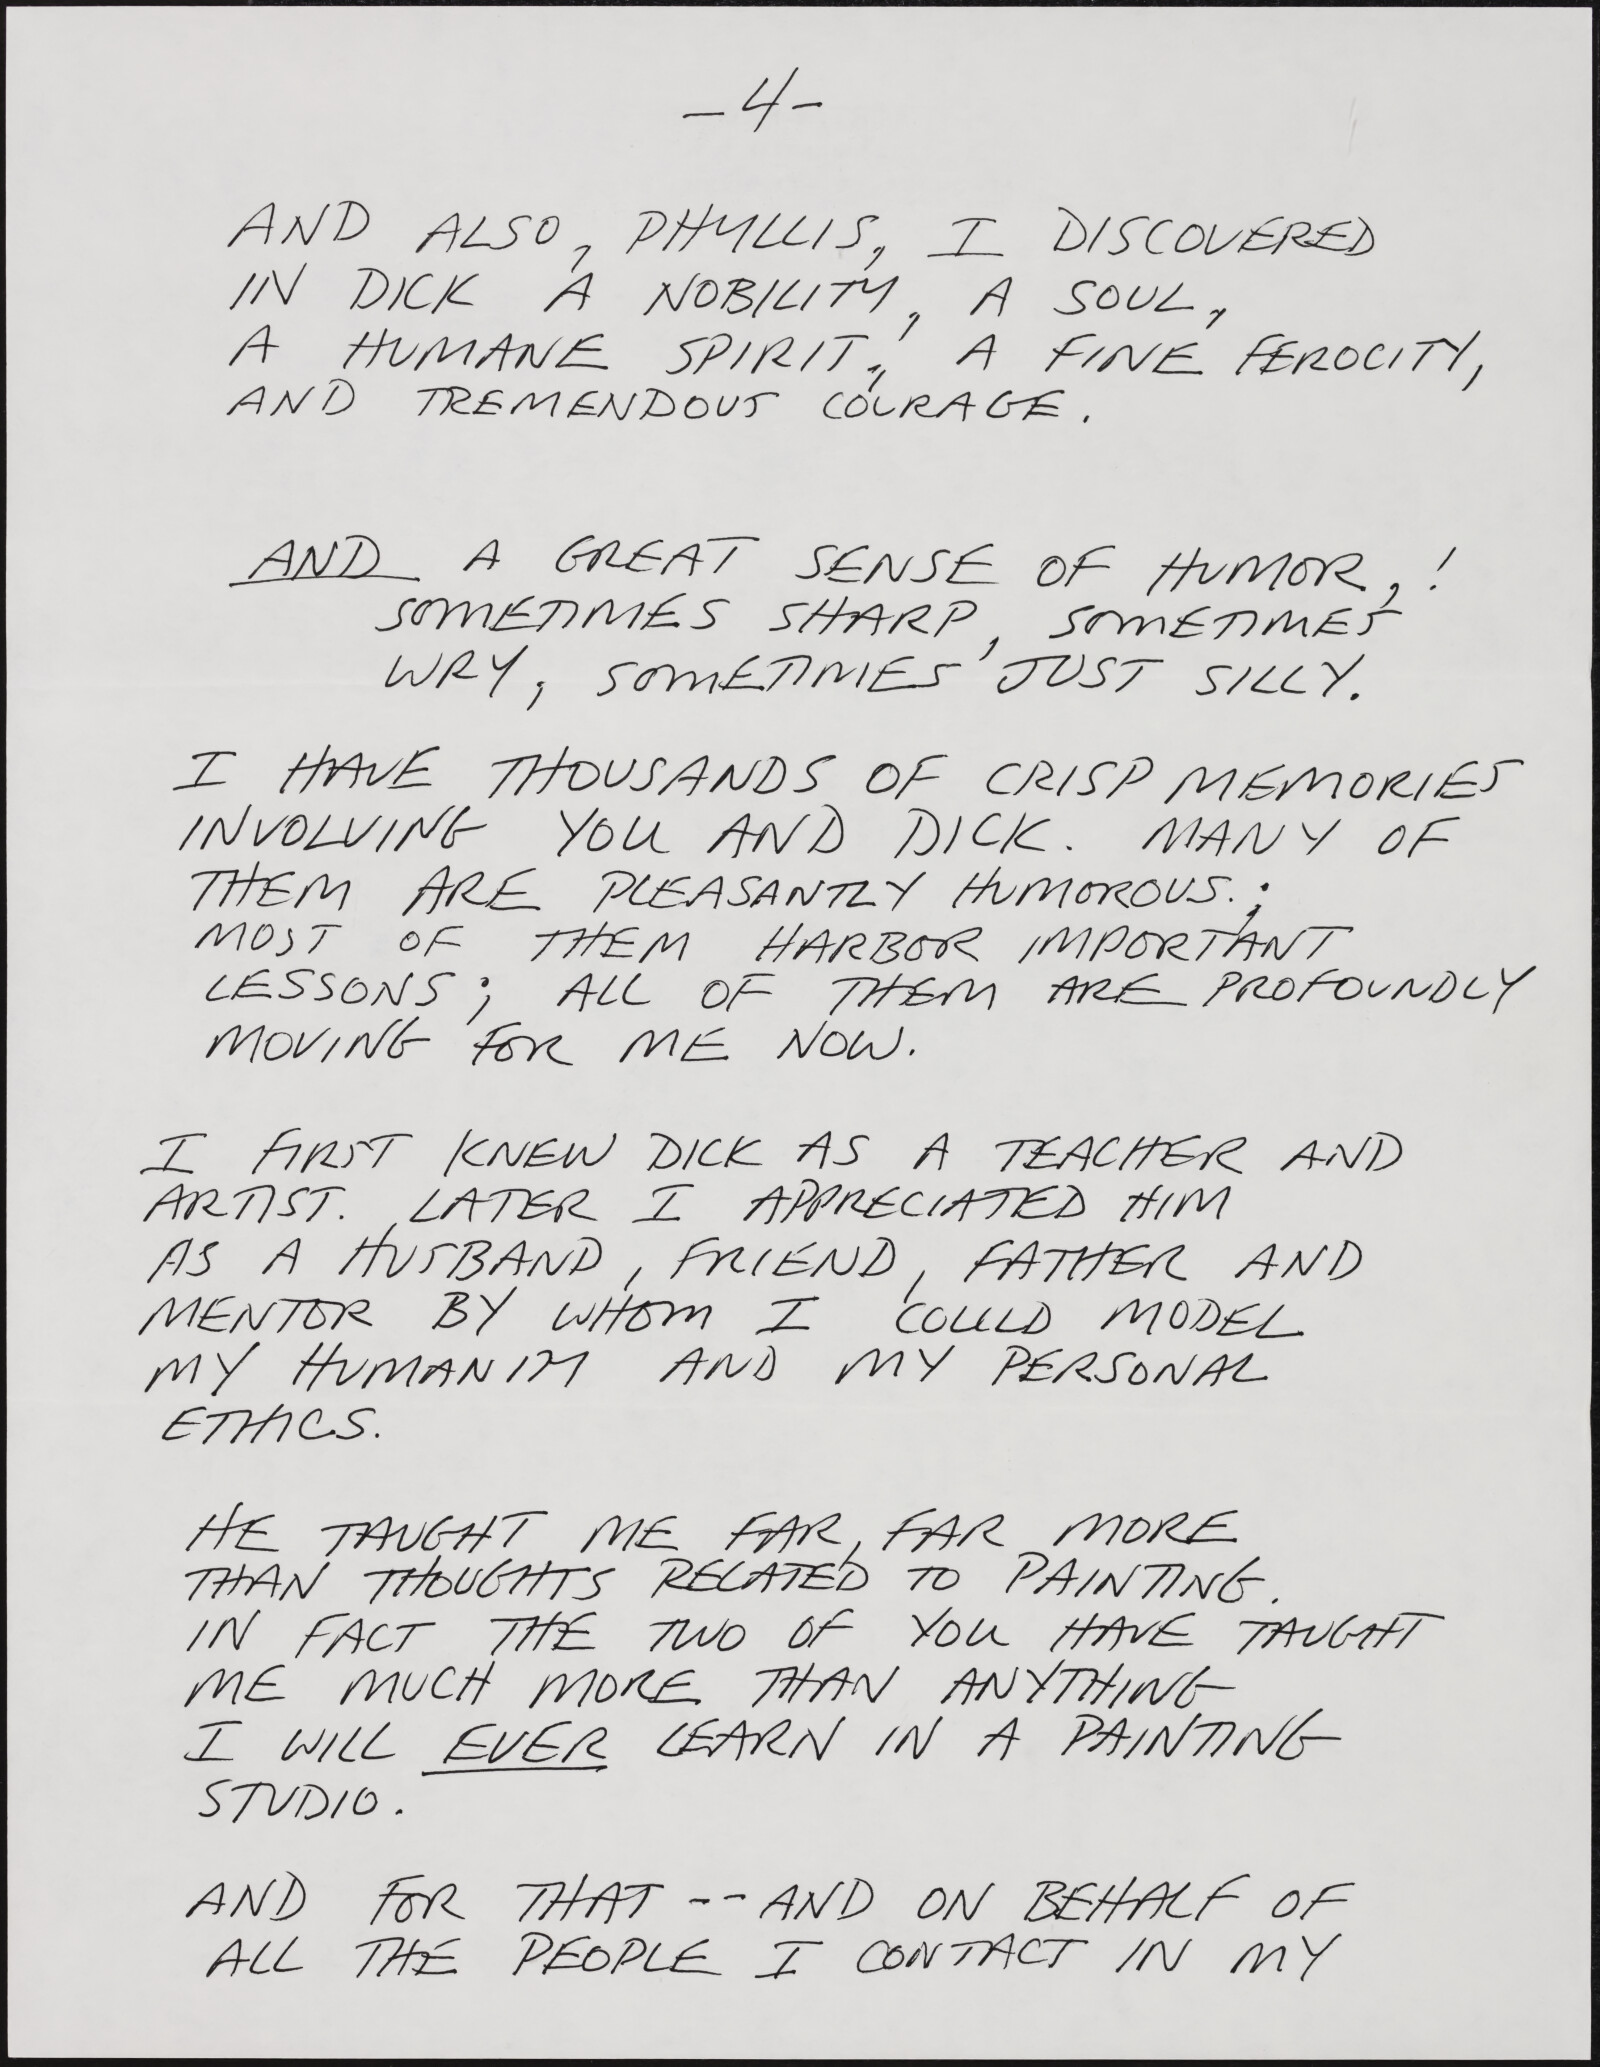 -4-
AND ALSO, PHYLLIS, I DISCOVERED
IN DICK A NOBILITY, A SOUL,
A HUMANE SPIRIT, A FINE FEROCITY,
AND TREMENDOUS COURAGE.
AND A GREAT SENSE OF HUMOR,!
SOMETIMES SHARP, SOMETIMES
WRY, SOMETIMES JUST SILLY.
I HAVE THOUSANDS OF CRISP MEMORIES
INVOLVING YOU AND DICK. MANY OF
THEM ARE PLEASANTLY HUMOROUS.;
MOST OF THEM HARBOR IMPORTANT
LESSONS; ALL OF THEM ARE PROFOUNDLY
MOVING FOR ME NOW.
I FIRST KNEW DICK AS A TEACHER AND
ARTIST. LATER I APPRECIATED HIM
AS A HUSBAND, FRIEND, FATHER AND
MENTOR BY WHOM I COULD MODEL
MY HUMANITY AND MY PERSONAL
ETHICS.
HE TAUGHT ME FAR, FAR MORE
THAN THOUGHTS RELATED TO PAINTING.
IN FACT THE TWO OF YOU HAVE TAUGHT
ME MUCH MORE THAN ANYTHING
I WILL EVER LEARN IN A PAINTING
STUDIO.
AND FOR THAT -- AND ON BEHALF OF
ALL THE PEOPLE I CONTACT IN MY